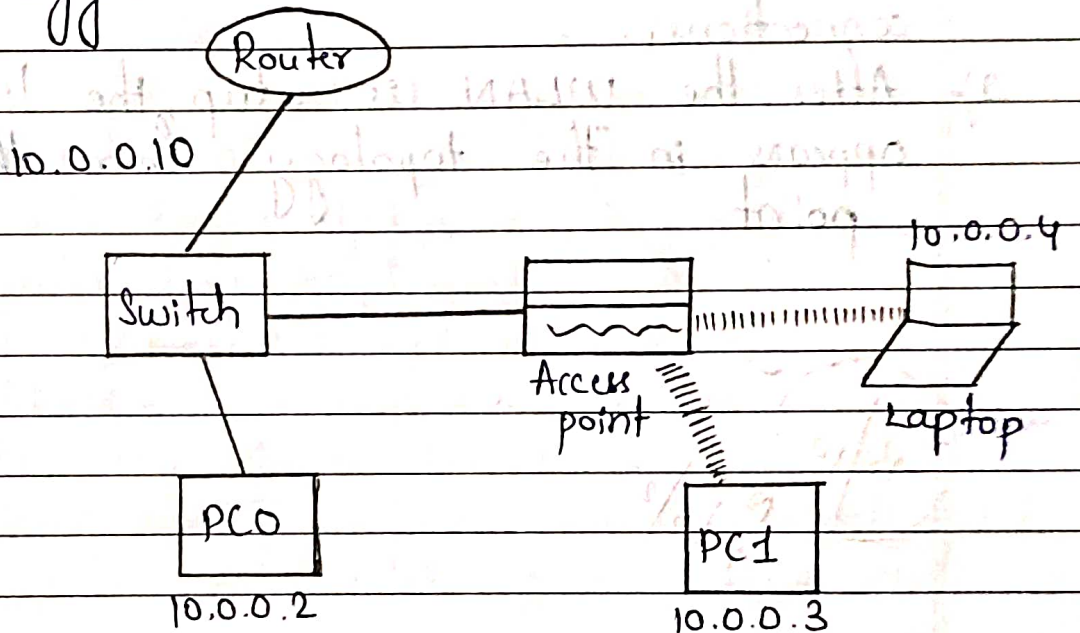 Router
10.0.0.10
10.0.0.4
Switch
Access
point
Laptop
PC0
PC1
10.0.0.2
10.0.0.3